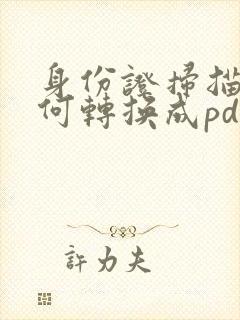 身份證掃描
何轉換成pd
許力夫